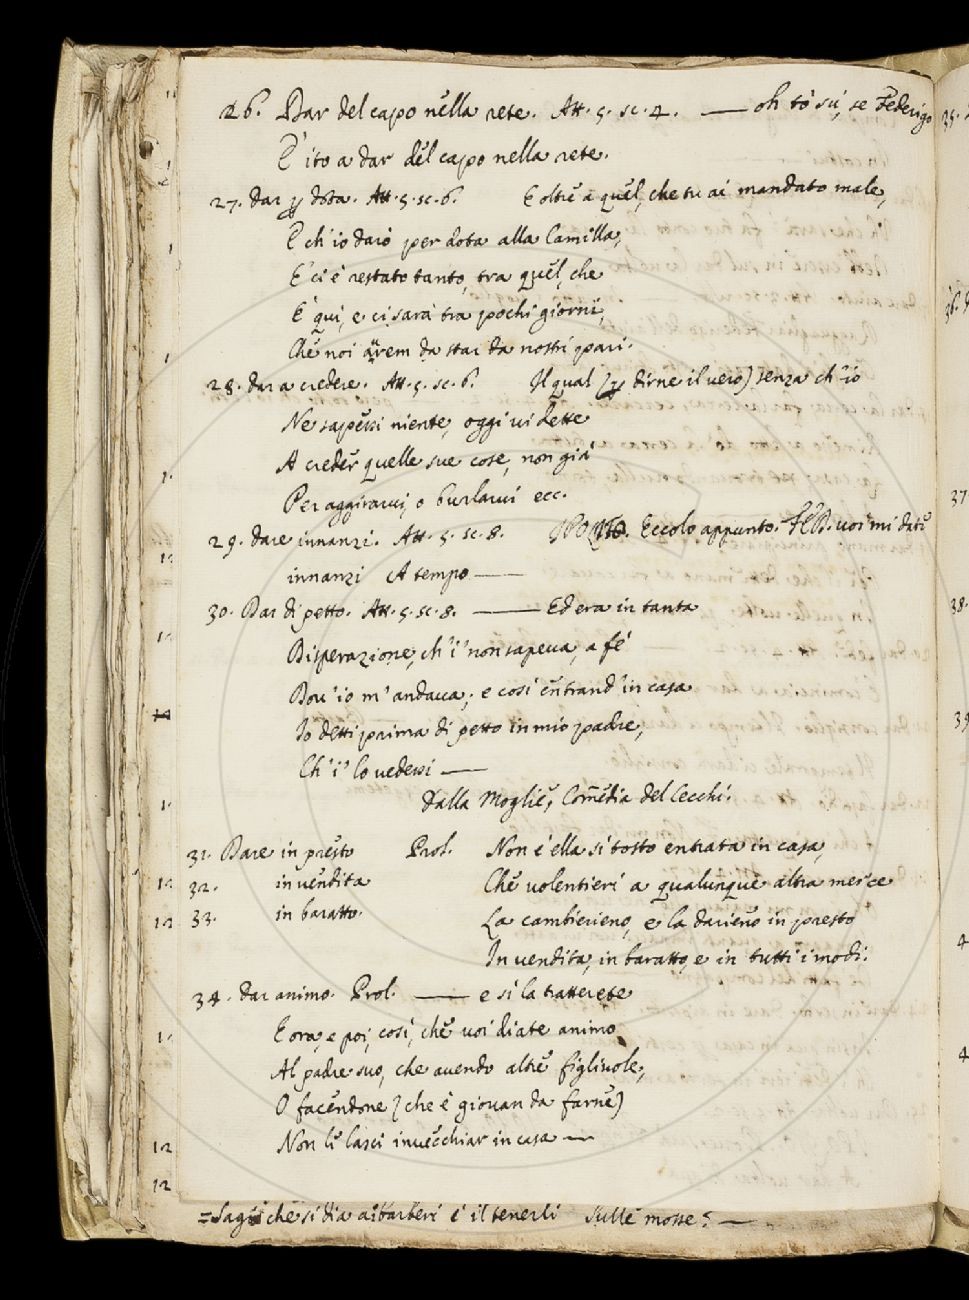 26. Dar del capo nella rete. Att. 5. sc. 2. — oh tò sù, se Federigo
È ito a dar del capo nella rete.
27. dar p dota. Att. 5. sc. 6. E oltre a quel, che tu ai mandato male,
E ch'io darò per dota alla Camilla,
E' ci è restato tanto, tra quel, che
E' qui, e ci sarà tra pochi giorni,
Che noi arem da star da nostri pari.
28. dar a credere. Att. 5. sc. 6. Il qual (p dirne il vero) senza ch'io
Ne sapessi niente, oggi vi dette
A creder quelle sue cose, non già
Per aggirarvi, o burlarvi ecc.
29. dare innanzi. Att. 5. sc. 8. Eccolo appunto. FED. voi mi date
innanzi A tempo —
30. Dar di petto. Att. 5. sc. 8. — Ed era in tanta
Disperazione, ch'i' non sapeva, a fé
Dov'io m'andava; e così entrand'in casa
Io detti prima di petto in mio padre,
Ch'i' lo vedessi —
Dalla Moglie, Comedia del Cecchi.
31. Dare in presto Prol. Non è ella sì tosto entrata in casa,
32. in vendita Che volentieri a qualunque altra merce
33. in baratto. La cambierieno, e la darieno in presto
In vendita, in baratto, e in tutti i modi.
34. dar animo. Prol. — e si la tratterete
E ora, e poi, così, che voi diate animo
Al padre suo, che avendo altre figliuole,
O facendone (che è giovan da farne)
Non le lasci invecchiar in casa —
che si dia ai barberi è il tenerli sulle mosse? —